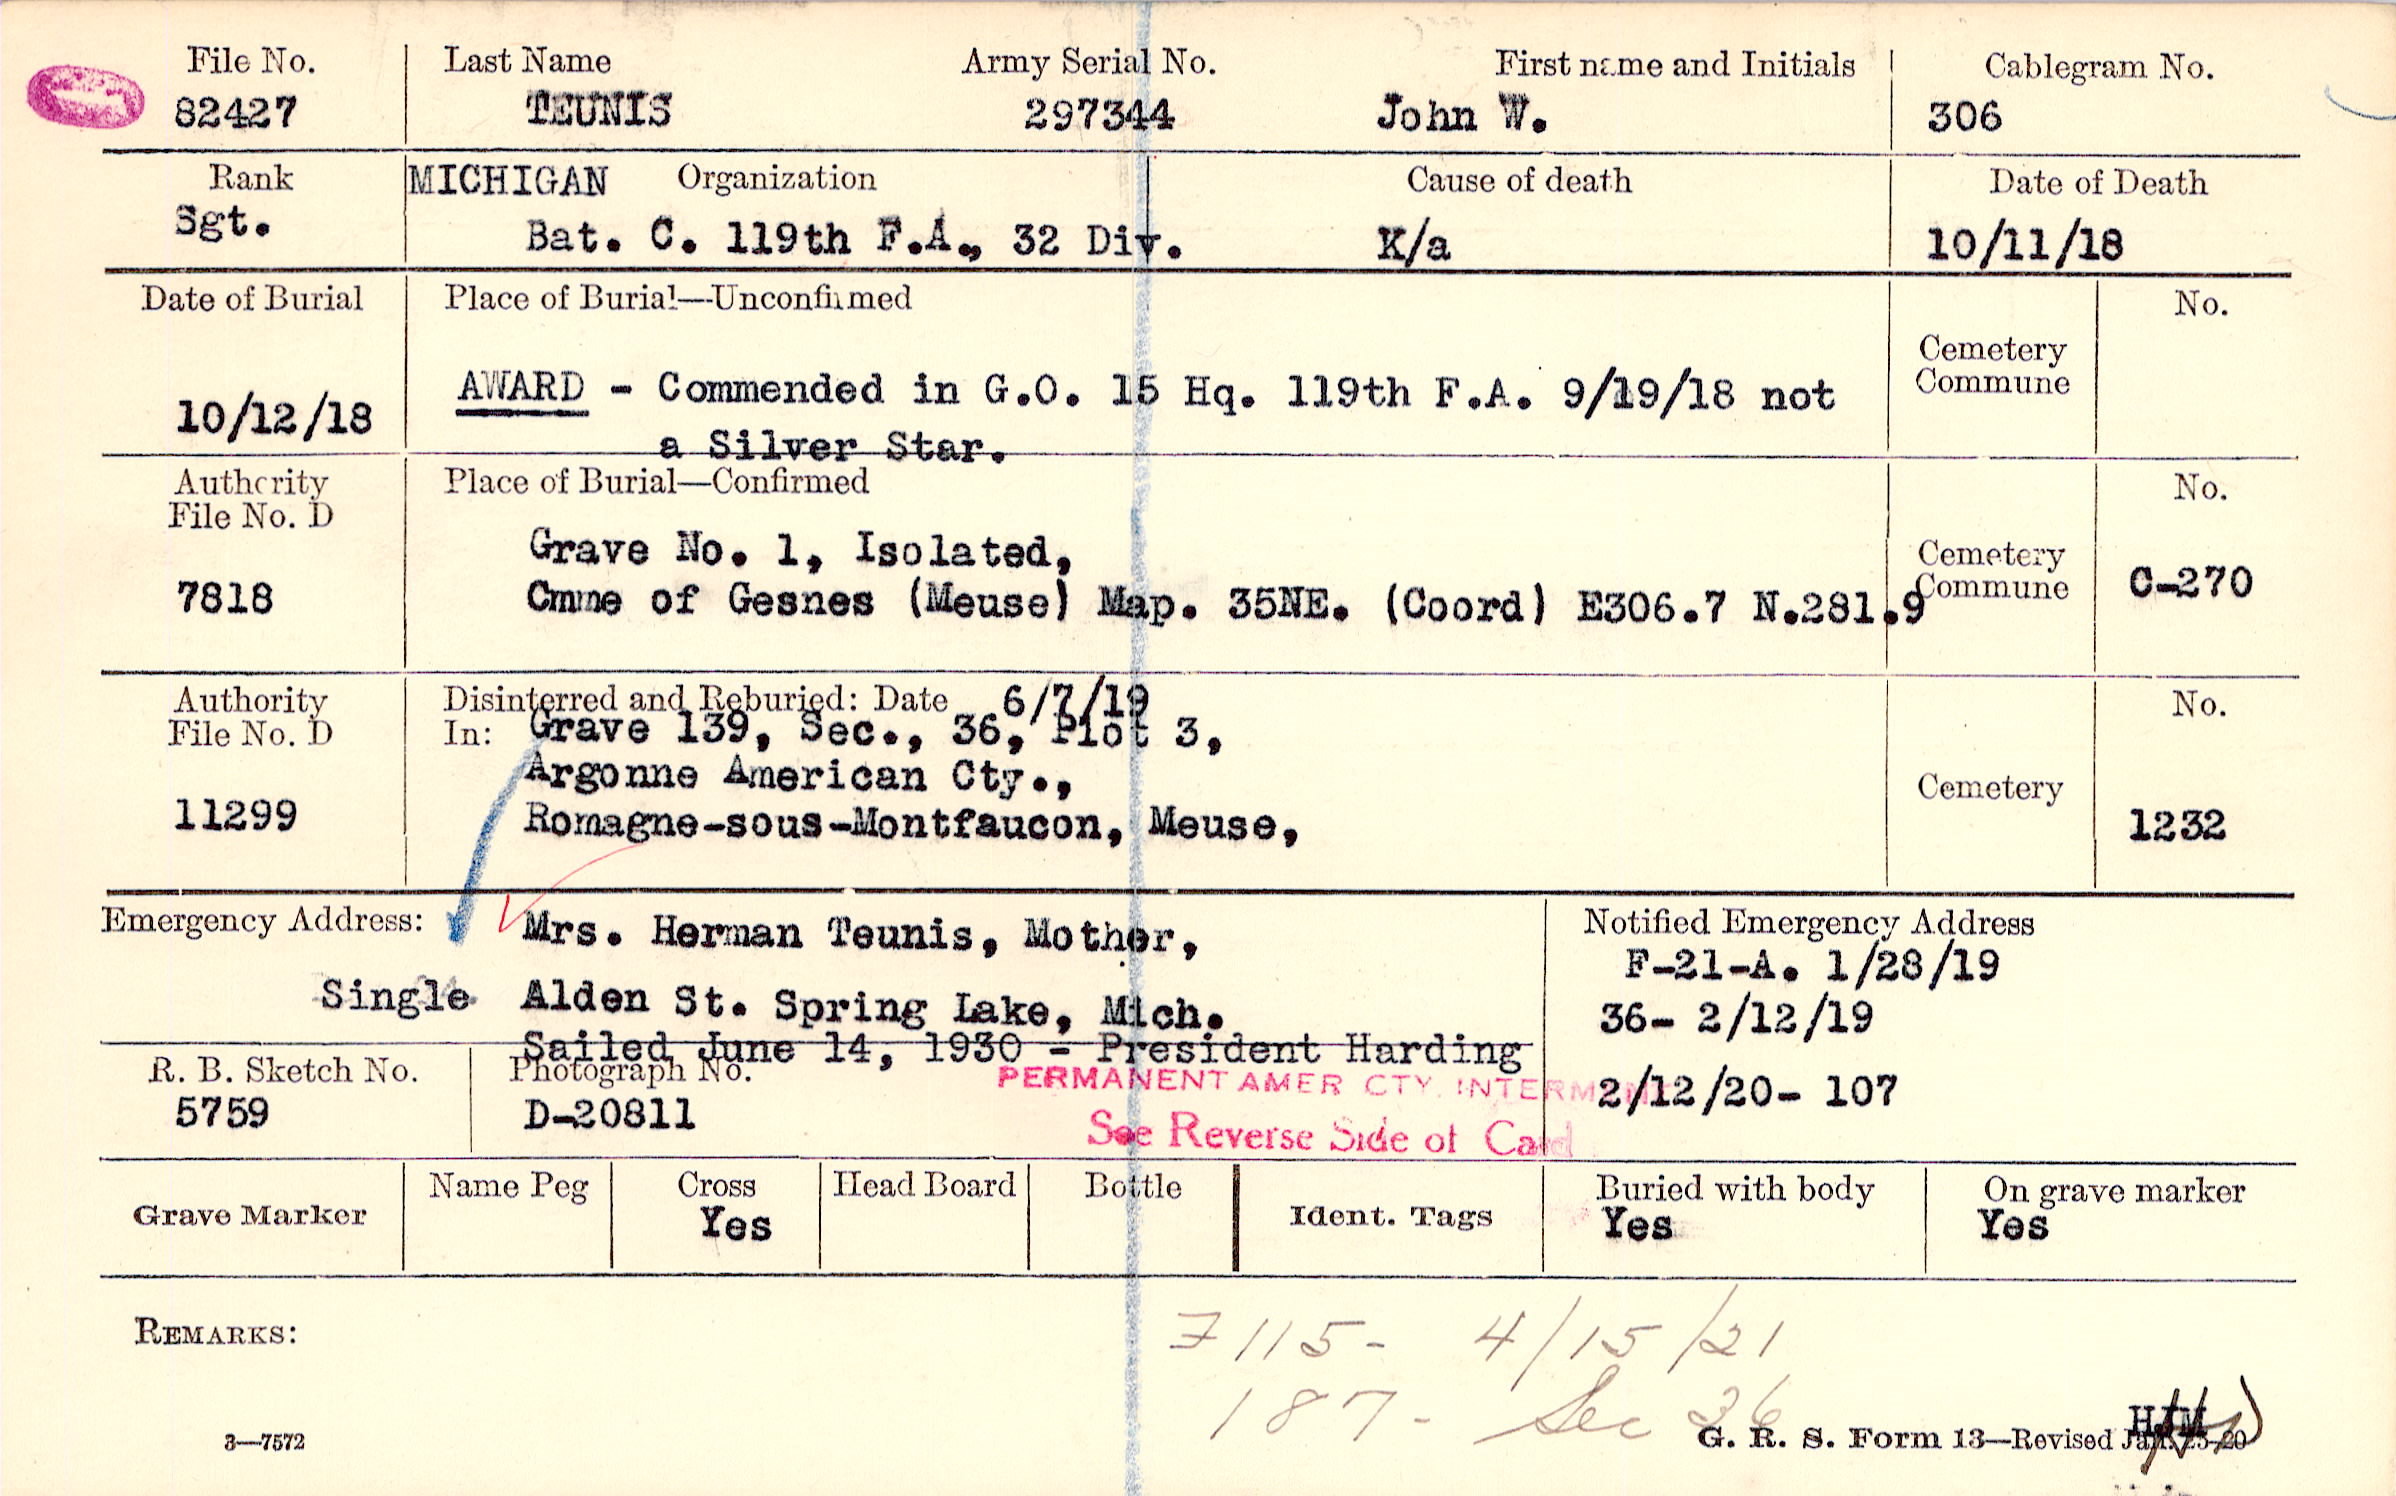 File No. Last Name Army Serial No. First name and Initials Cablegram No.
82427 TEUNIS 297344 John W. 306
Rank MICHIGAN Organization Cause of death Date of Death
Sgt. Bat. C. 119th F.A., 32 Div. K/a 10/11/18
Date of Burial Place of Burial—Unconfirmed No.
Cemetery
Commune
10/12/18 AWARD - Commended in G.O. 15 Hq. 119th F.A. 9/19/18 not
a Silver Star.
Authority Place of Burial—Confirmed No.
File No. D
Grave No. 1, Isolated, Cemetery
7818 Cmme of Gesnes (Meuse) Map. 35NE. (Coord) E306.7 N.281.9 Commune C-270
Authority Disinterred and Reburied: Date 6/7/19 No.
File No. D In: Grave 139, Sec., 36, Plot 3,
Argonne American Cty., Cemetery
11299 Romagne-sous-Montfaucon, Meuse, 1232
Emergency Address: Mrs. Herman Teunis, Mother, Notified Emergency Address
F-21-A. 1/28/19
Single Alden St. Spring Lake, Mich. 36- 2/12/19
Sailed June 14, 1930 - President Harding
R. B. Sketch No. Photograph No. PERMANENT AMER CTY. INTERMENT 2/12/20- 107
5759 D-20811 See Reverse Side of Card
Grave Marker Name Peg Cross Head Board Bottle Ident. Tags Buried with body On grave marker
Yes Yes Yes
REMARKS: 115- 4/15/21
187- Sec 36
HJM
3—7572 G. R. S. Form 13—Revised Jan. 23-20